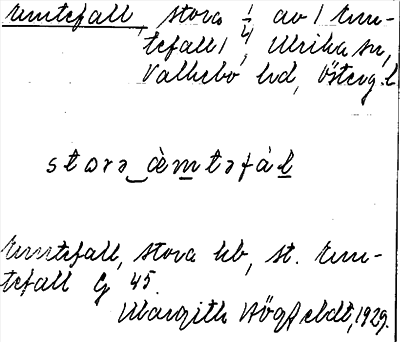 Emtefall, stora 1/4 av 1 Em-
tefall, Ulrika sn,
Valkebo hd, Österg. l
storə‿æ̀mtəfàl
Emtefall, stora hb, st. Em-
tefall G 45.
Margith Högfeldt, 1929.